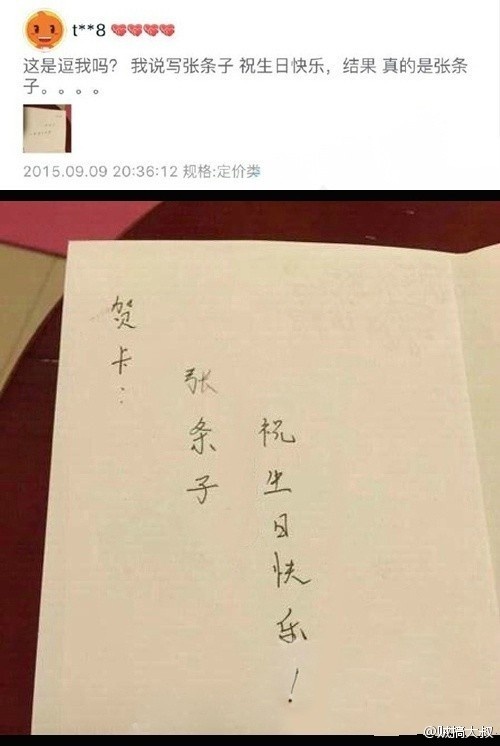 t**8
这是逗我吗? 我说写张条子 祝生日快乐,结果 真的是张条
子。。。。
2015.09.09 20:36:12 规格:定价类
贺卡:
张条子
祝生日快乐!